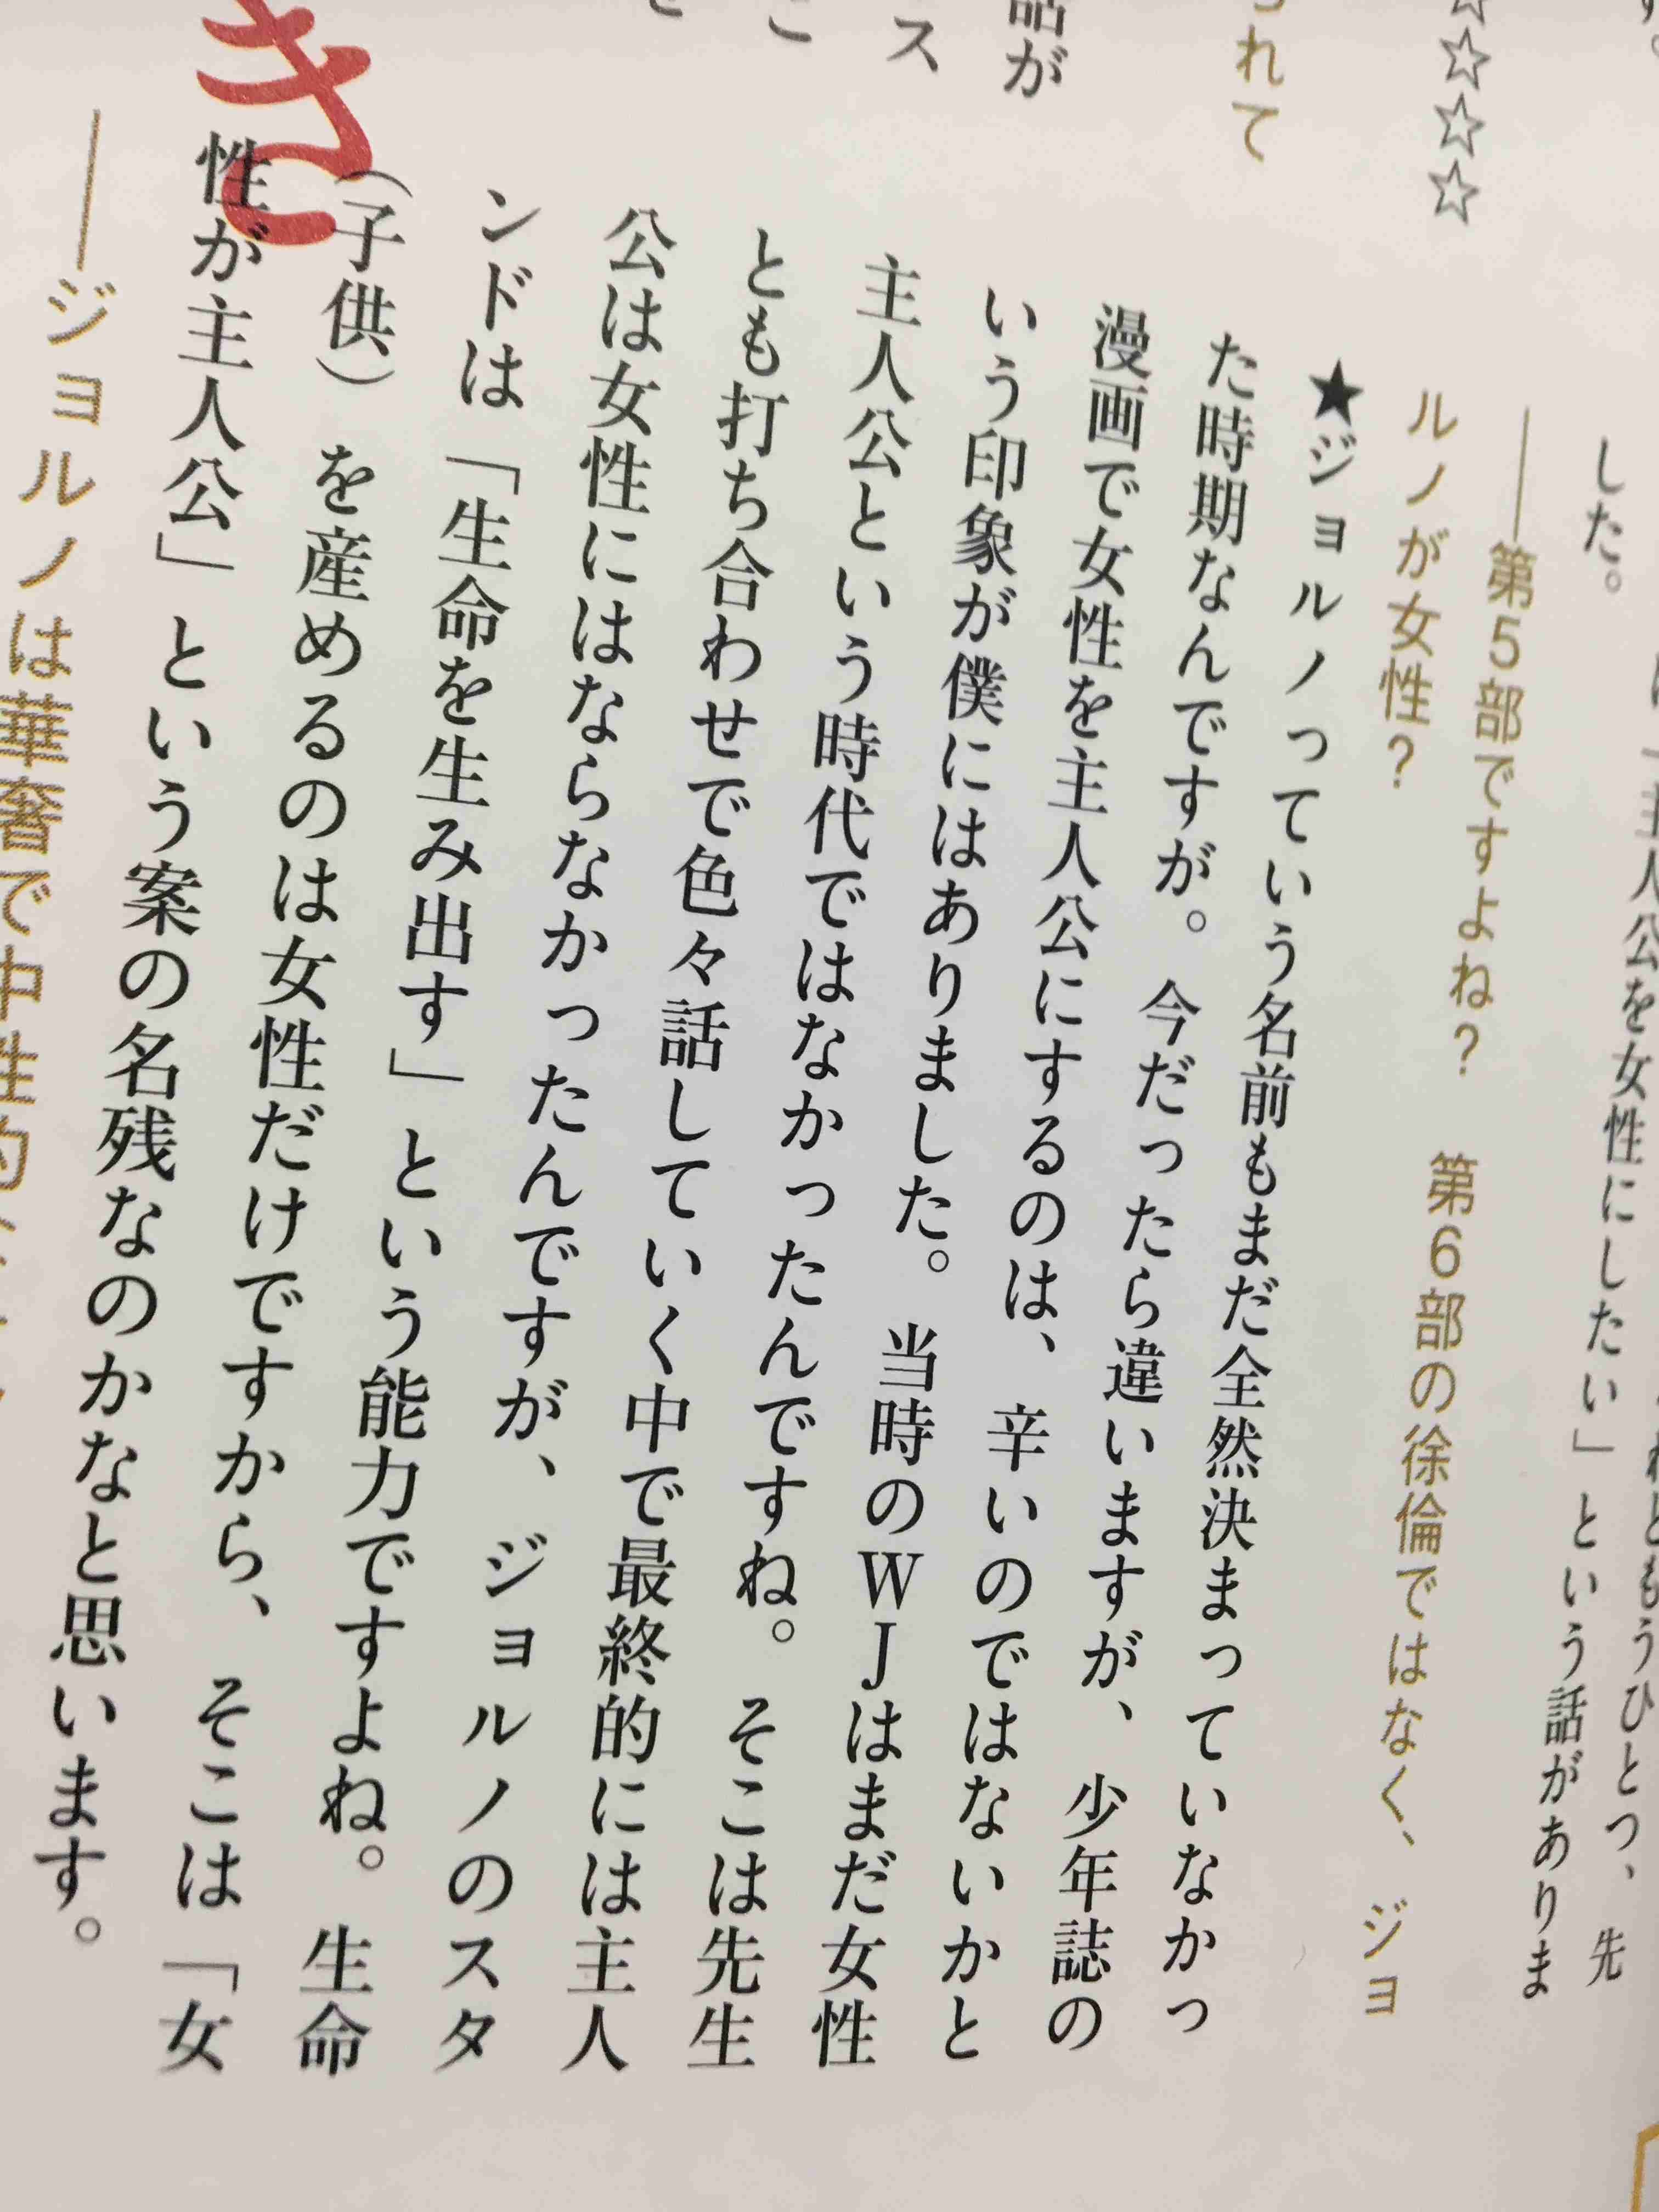 主人公を女性にしたい」という話がありま
した。
――第5部ですよね？　第6部の徐倫ではなく、ジョ
ルノが女性？
★ジョルノっていう名前もまだ全然決まっていなかっ
た時期なんですが。今だったら違いますが、少年誌の
漫画で女性を主人公にするのは、辛いのではないかと
いう印象が僕にはありました。当時のWJはまだ女性
主人公という時代ではなかったんですね。そこは先生
とも打ち合わせで色々話していく中で最終的には主人
公は女性にはならなかったんですが、ジョルノのスタ
ンドは「生命を生み出す」という能力ですよね。生命
（子供）を産めるのは女性だけですから、そこは「女
性が主人公」という案の名残なのかなと思います。
――ジョルノは華奢で中性的
☆☆☆
られて
話が
ス
こ
き